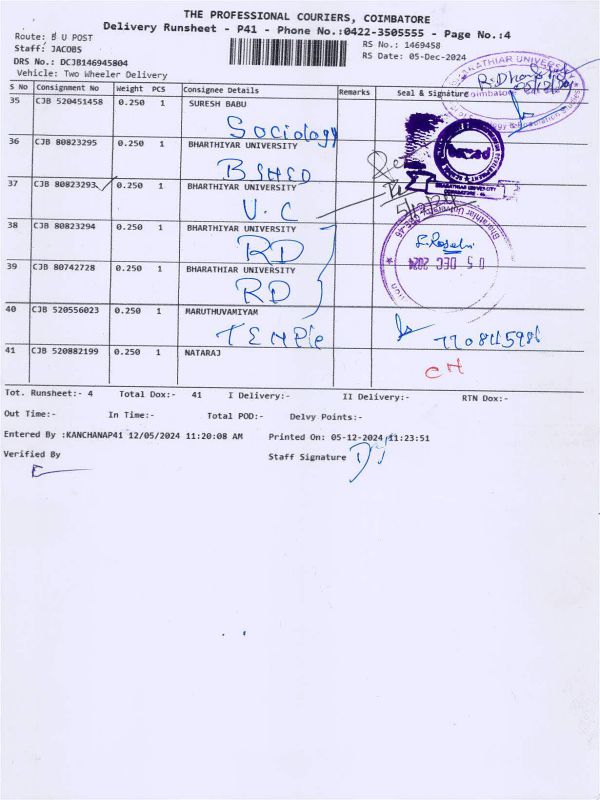 THE PROFESSIONAL COURIERS, COIMBATORE
Delivery Runsheet - P41 - Phone No.:0422-3505555 - Page No.:4
Route: B U POST
RS No.: 1469458
Staff: JACOBS
RS Date: 05-Dec-2024
DRS No.: DCJB146945804
Vehicle: Two Wheeler Delivery
S No Consignment No Weight PCS Consignee Details Remarks Seal & Signature
35 CJB 520451458 0.250 1 SURESH BABU
Sociology
36 CJB 80823295 0.250 1 BHARTHIYAR UNIVERSITY
37 CJB 80823293 0.250 1 BHARTHIYAR UNIVERSITY
V.C
5/12/24
38 CJB 80823294 0.250 1 BHARTHIYAR UNIVERSITY
RD
05 DEC 2024
39 CJB 80742728 0.250 1 BHARATHIAR UNIVERSITY
RD
40 CJB 520556023 0.250 1 MARUTHUVAMIYAM
TEMPle
41 CJB 520882199 0.250 1 NATARAJ
CH
Tot. Runsheet:- 4 Total Dox:- 41 I Delivery:- II Delivery:- RTN Dox:-
Out Time:- In Time:- Total POD:- Delvy Points:-
Entered By :KANCHANAP41 12/05/2024 11:20:08 AM Printed On: 05-12-2024 11:23:51
Verified By Staff Signature